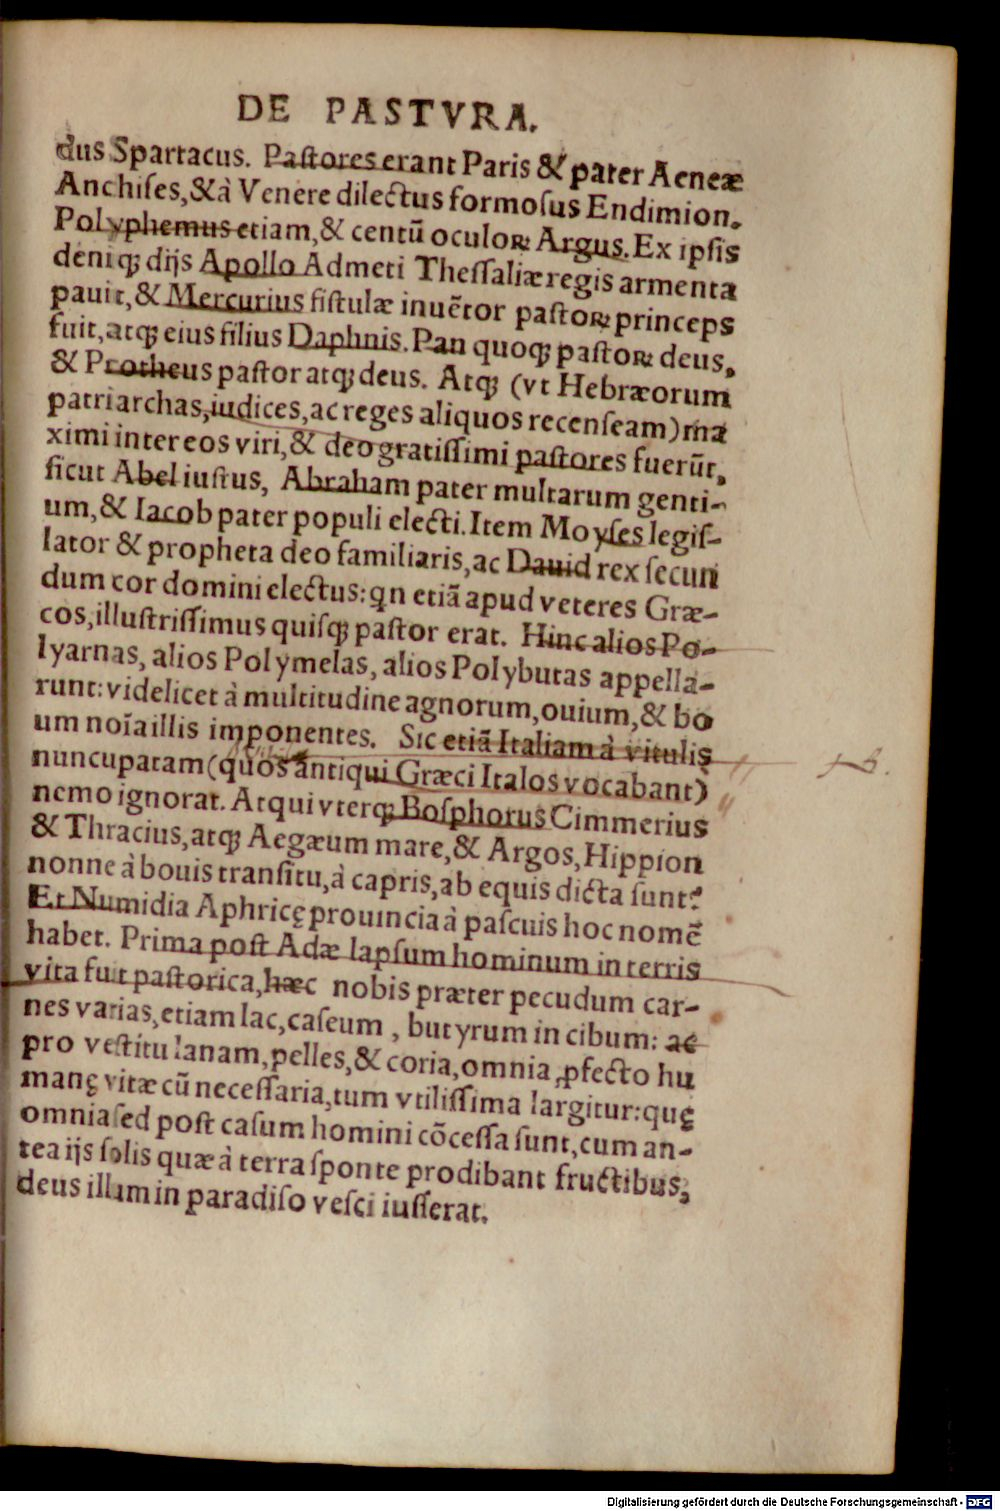 DE PASTVRA.
dus Spartacus. Pastores erant Paris & pater Aeneæ
Anchises, & à Venere dilectus formosus Endimion.
Polyphemus etiam, & centū oculoꝝ Argus. Ex ipsis
deniqꝫ dijs Apollo Admeti Thessaliæ regis armenta
pauit, & Mercurius fistulæ inuētor pastoꝝ princeps
fuit, atqꝫ eius filius Daphnis. Pan quoqꝫ pastoꝝ deus,
& Protheus pastor atqꝫ deus. Atqꝫ (vt Hebræorum
patriarchas, iudices, ac reges aliquos recenseam) ma
ximi inter eos viri, & deo gratissimi pastores fuerūt,
sicut Abel iustus, Abraham pater multarum genti-
um, & Iacob pater populi electi. Item Moyses legis-
lator & propheta deo familiaris, ac Dauid rex secun
dum cor domini electus: qn etiā apud veteres Græ-
cos, illustrissimus quisqꝫ pastor erat. Hinc alios Po-
lyarnas, alios Polymelas, alios Polybutas appella-
runt: videlicet à multitudine agnorum, ouium, & bo
um noīa illis imponentes. Sic etiā Italiam à vitulis
nuncupatam (quos antiqui Græci Italos vocabant)
nemo ignorat. Atqui vterqꝫ Bosphorus Cimmerius
& Thracius, atqꝫ Aegæum mare, & Argos, Hippion
nonne à bouis transitu, à capris, ab equis dicta sunt?
Et Numidia Aphricę prouincia à pascuis hoc nomē
habet. Prima post Adæ lapsum hominum in terris
vita fuit pastorica, hæc nobis præter pecudum car-
nes varias, etiam lac, caseum, butyrum in cibum: ac
pro vestitu lanam, pelles, & coria, omnia ꝓfecto hu
manę vitæ cū necessaria, tum vtilissima largitur: quę
omnia sed post casum homini cōcessa sunt, cum an-
tea ijs solis quæ à terra sponte prodibant fructibus,
deus illum in paradiso vesci iusserat.
Digitalisierung gefördert durch die Deutsche Forschungsgemeinschaft - DFG